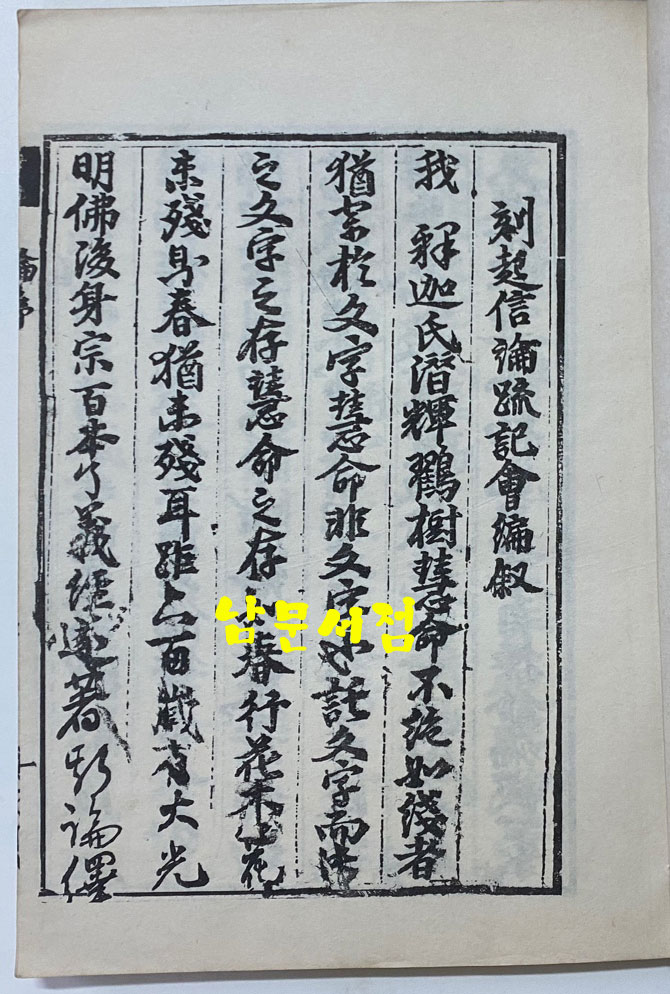 刻起信論疏記會編叙
我 釋迦氏潛輝鶴樹慧命不絕如綫者
猶寄於文字慧命非文字也託文字而傳
之文字之存慧命之存如春行花木花
未殘男春猶未殘耳距六百歲有大光
明佛後身宗百本了義經造著斯論繹
論序
남문서점